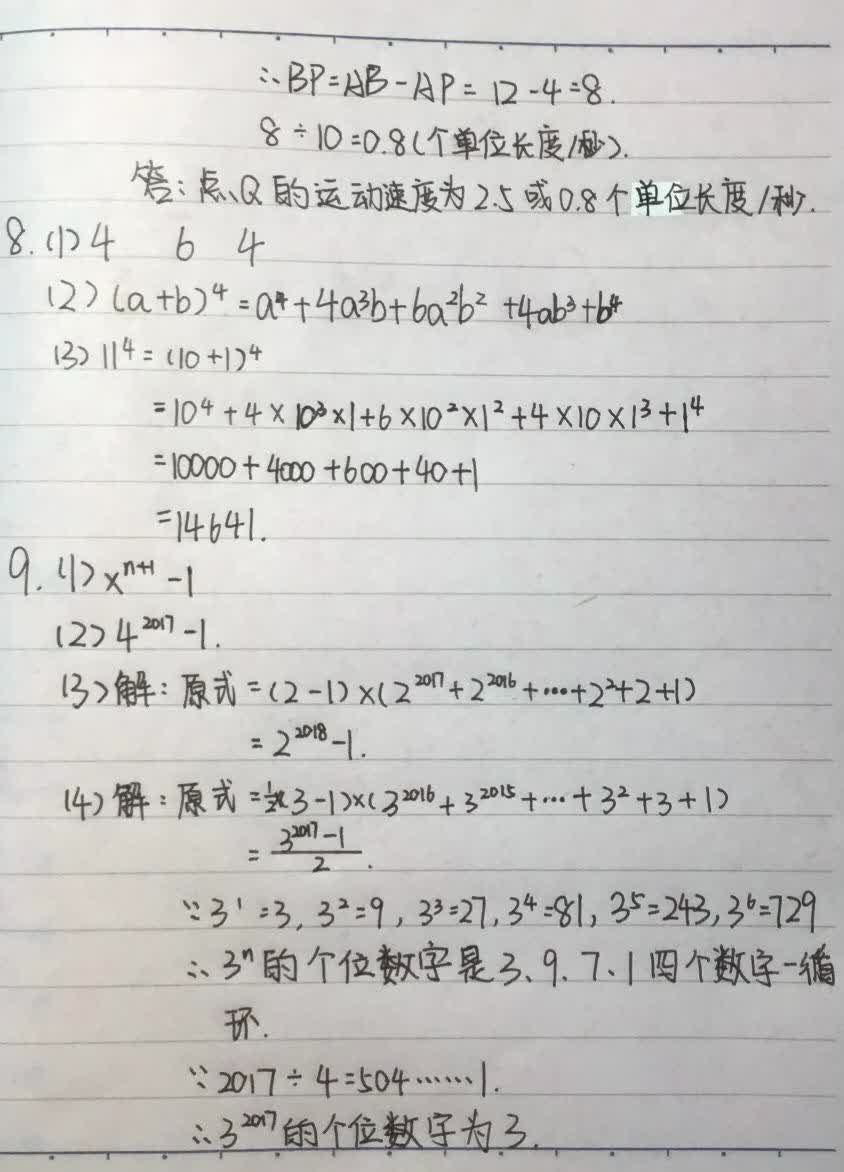 ∴BP=AB-AP=12-4=8.
8÷10=0.8(个单位长度/秒).
答:点Q的运动速度为2.5或0.8个单位长度/秒.
8.(1)4 6 4
(2)(a+b)⁴=a⁴+4a³b+6a²b²+4ab³+b⁴
(3)11⁴=(10+1)⁴
=10⁴+4×10³×1+6×10²×1²+4×10×1³+1⁴
=10000+4000+600+40+1
=14641.
9.(1)xⁿ⁺¹-1
(2)4²⁰¹⁷-1.
(3)解:原式=(2-1)×(2²⁰¹⁷+2²⁰¹⁶+…+2²+2+1)
=2²⁰¹⁸-1.
(4)解:原式=½×(3-1)×(3²⁰¹⁶+3²⁰¹⁵+…+3²+3+1)
=(3²⁰¹⁷-1)/2.
∵3¹=3,3²=9,3³=27,3⁴=81,3⁵=243,3⁶=729
∴3ⁿ的个位数字是3、9、7、1四个数字一循
环.
∵2017÷4=504……1.
∴3²⁰¹⁷的个位数字为3.